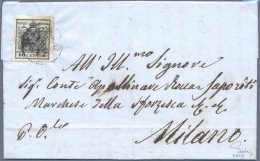 All' Ill.mo Signore
Sig. Conte Apollinare Rocca Saporiti
Marchese della Sforzesca
Milano